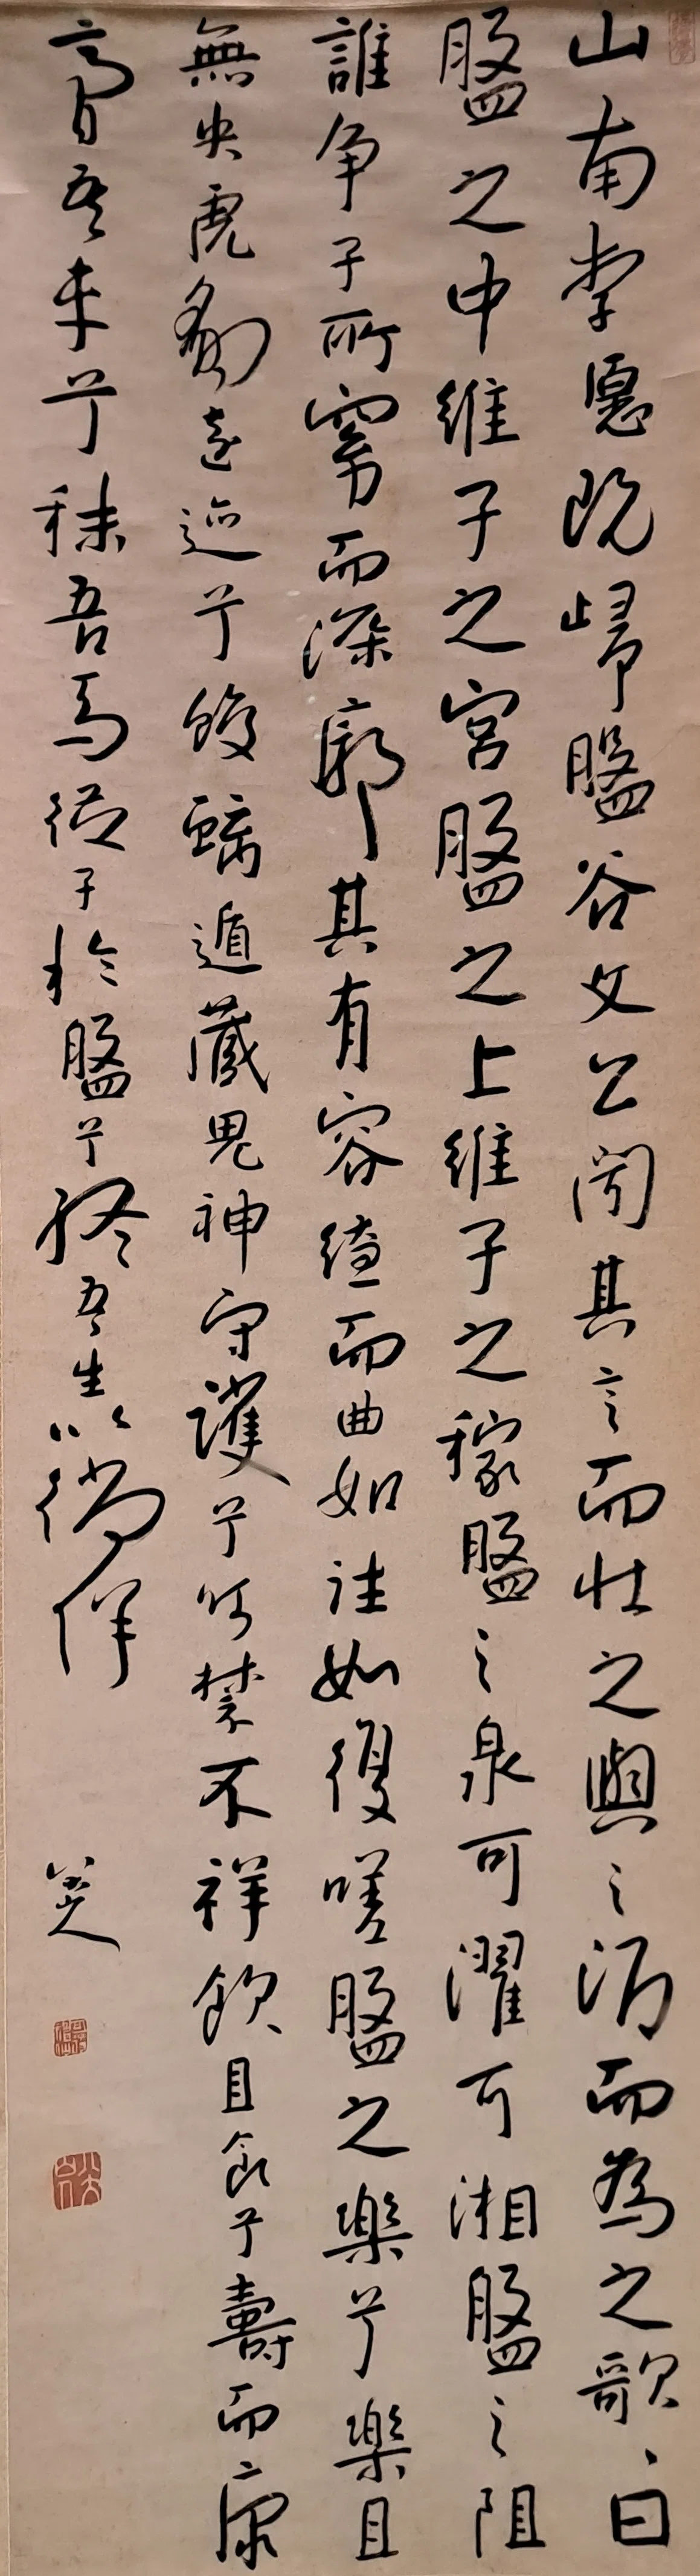 山南李愿既歸盤谷文公聞其言而壯之與之酒而為之歌々曰
盤之中維子之宮盤之上維子之稼盤之泉可濯可湘盤之阻
誰爭子所窈而深廓其有容繚而曲如往如復嗟盤之樂兮樂且
無央虎豹遠迹兮蛟螭遁藏鬼神守護兮呵禁不祥飲且食兮壽而康
膏吾車兮秣吾馬從子於盤兮終吾生以徜徉
八大山人